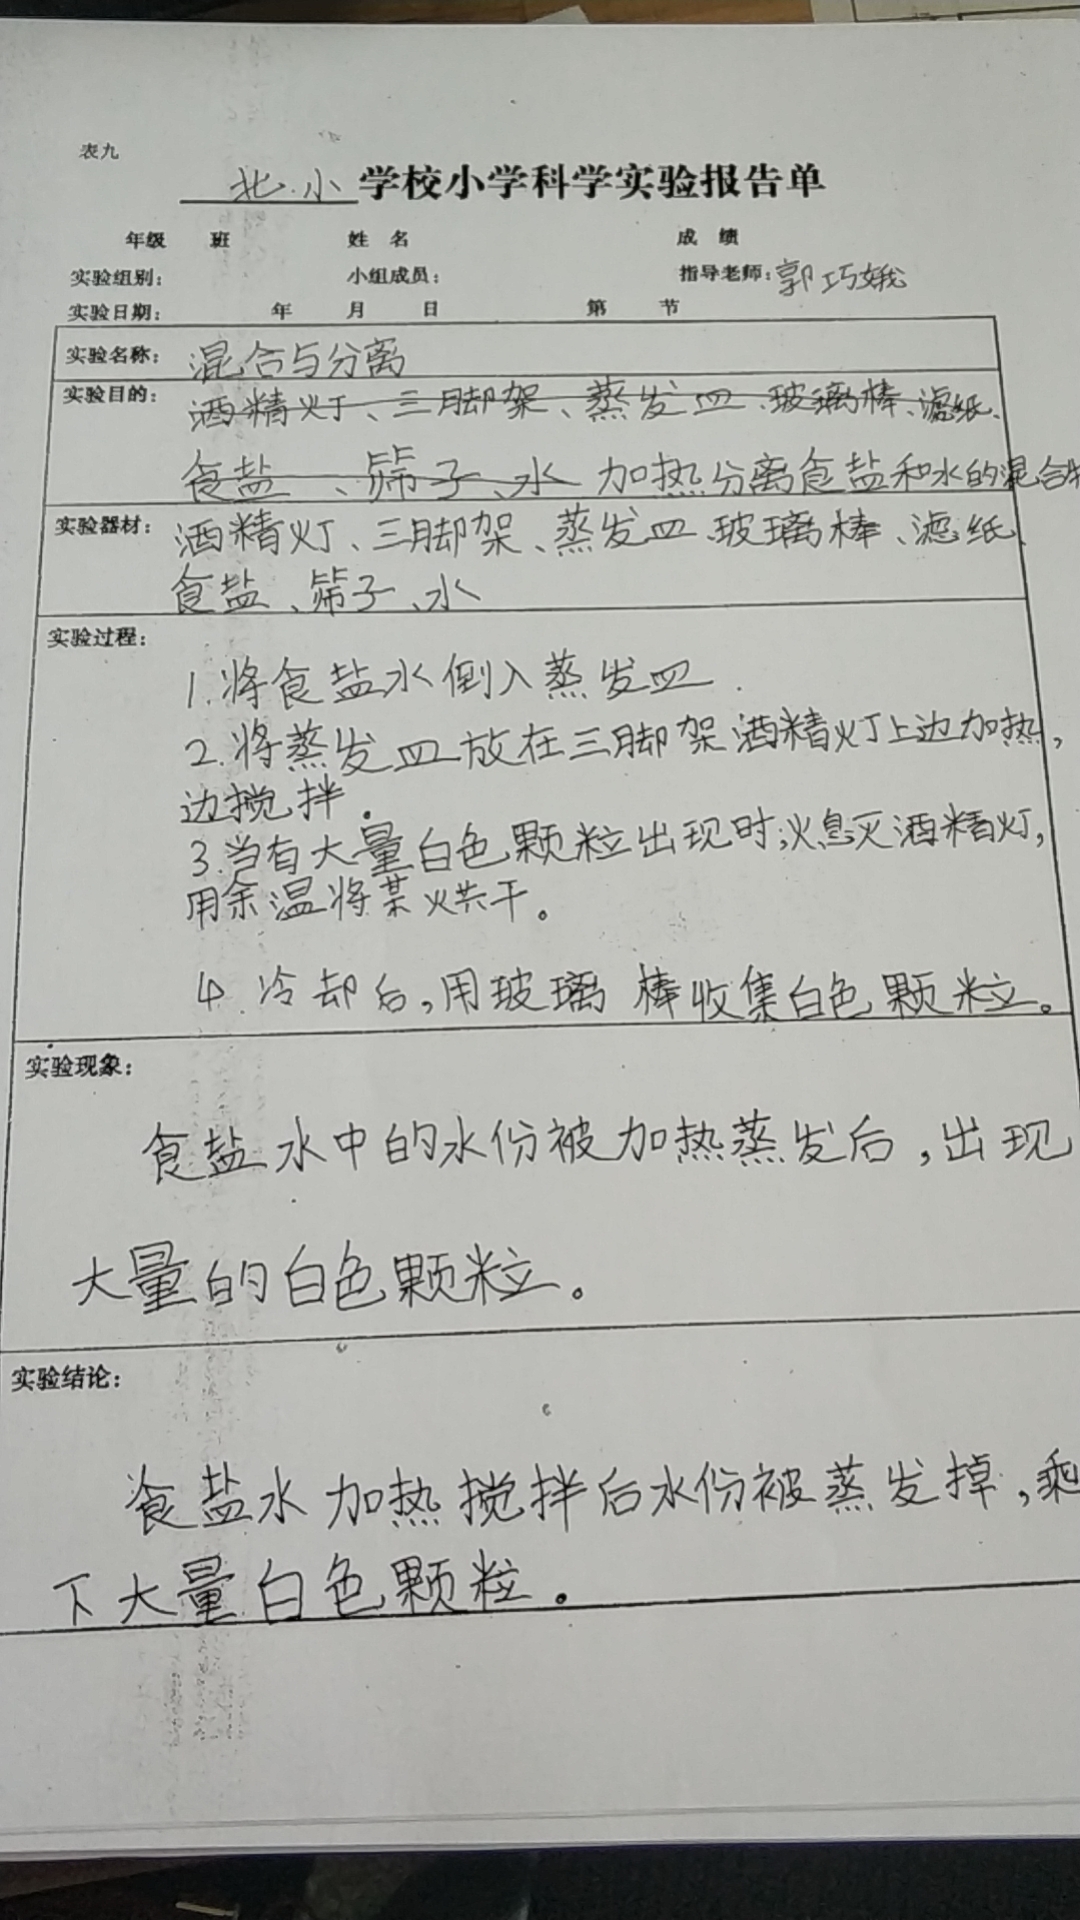 表九
北小学校小学科学实验报告单
年级 班 姓 名 成 绩
实验组别： 小组成员： 指导老师：郭巧娥
实验日期： 年 月 日 第 节
实验名称： 混合与分离
实验目的： 酒精灯、三脚架、蒸发皿、玻璃棒、滤纸、
食盐、筛子、水 加热分离食盐和水的混合物
实验器材： 酒精灯、三脚架、蒸发皿、玻璃棒、滤纸、
食盐、筛子、水
实验过程：
1.将食盐水倒入蒸发皿.
2.将蒸发皿放在三脚架酒精灯上边加热，
边搅拌。
3.当有大量白色颗粒出现时，熄灭酒精灯，
用余温将某烘干。
4.冷却后，用玻璃棒收集白色颗粒。
实验现象：
食盐水中的水份被加热蒸发后，出现
大量的白色颗粒。
实验结论：
食盐水加热搅拌后水份被蒸发掉，剩
下大量白色颗粒。